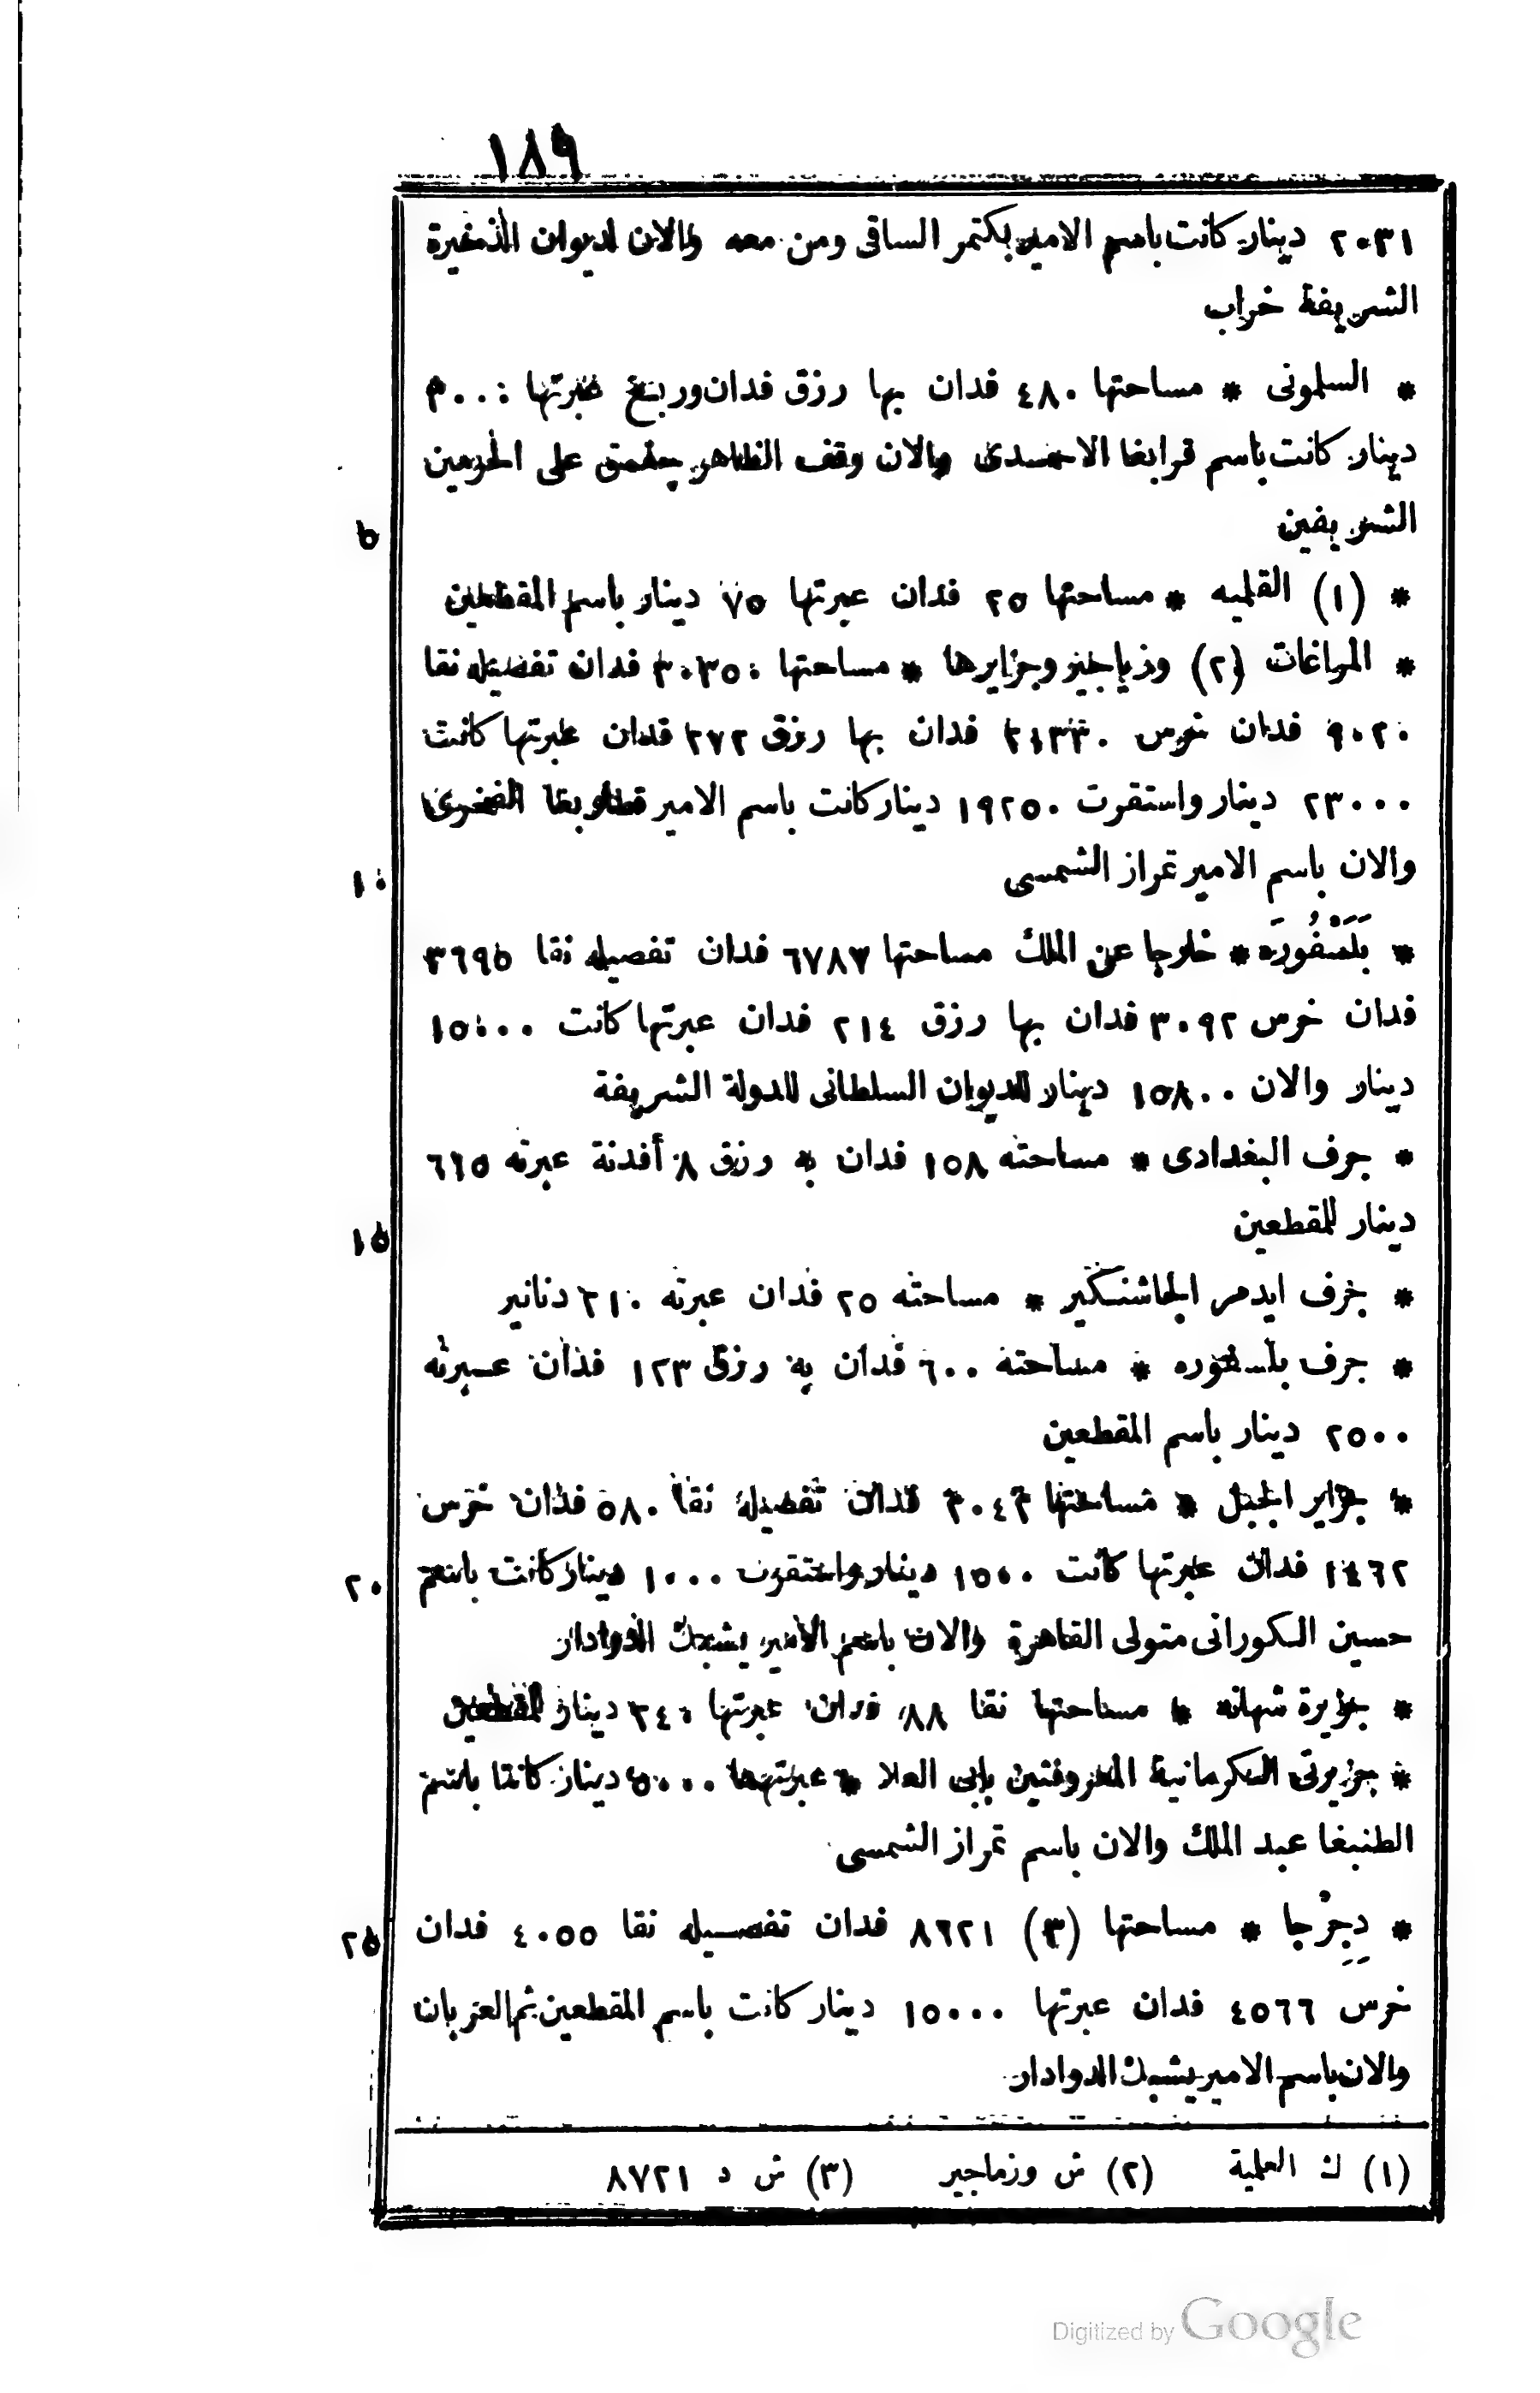 ١٨٩
٢٠٣١ دينار كانت باسم الامير بكتمر الساقى ومن معه والان لديوان الذخيرة
الشريفة خراب
* السلمونى * مساحتها ٤٨٠ فدان بها رزق فدان وربع عبرتها ٣٠٠٠
دينار كانت باسم قرابغا الاحمدى والان وقف الظاهر جقمق على الحرمين
الشريفين
٥
* (١) القلميه * مساحتها ٢٥ فدان عبرتها ٧٥ دينار باسم المقطعين
* المراغات (٢) وزياجيز وجزايرها * مساحتها ٣٠٣٥٠ فدان تفصيله نقا
٩٠٢٠ فدان خرس ٢١٣٣٠ فدان بها رزق ٢٧٢ فدان عبرتها كانت
٢٣٠٠٠ دينار واستقرت ١٩٢٥٠ دينار كانت باسم الامير قطلوبغا الفخرى
والان باسم الامير تمراز الشمسى
١٠
* بَلَسْفُورَه * خارجا عن الملك مساحتها ٦٧٨٧ فدان تفصيله نقا ٣٦٩٥
فدان خرس ٣٠٩٢ فدان بها رزق ٢١٤ فدان عبرتها كانت ١٥٠٠٠
دينار والان ١٥٨٠٠ دينار للديوان السلطانى للدولة الشريفة
* جرف البغدادى * مساحته ١٥٨ فدان به رزق ٨ أفدنة عبرته ٦٦٥
دينار للمقطعين
١٥
* جرف ايدمر الجاشنكير * مساحته ٢٥ فدان عبرته ٢١٠ دنانير
* جرف بلسفوره * مساحته ٦٠٠ فدان به رزق ١٢٣ فدان عبرته
٢٥٠٠ دينار باسم المقطعين
* جزاير الجبل * مساحتها ٢٠٤٢ فدان تفصيله نقا ٥٨٠ فدان خرس
١٤٦٢ فدان عبرتها كانت ١٥٠٠ دينار واستقرت ١٠٠٠ دينار كانت باسم
٢٠
حسين الكورانى متولى القاهرة والان باسم الامير يشبك الدوادار
* جزيرة شهانه * مساحتها نقا ٨٨ فدان عبرتها ٢٤٠ دينار للمقطعين
* جزيرتى الكرمانية المعروفتين بابى العلا * عبرتهما ٥٠٠٠ دينار كانتا باسم
الطنبغا عبد الملك والان باسم تمراز الشمسى
* دِجِرْجا * مساحتها (٣) ٨٦٢١ فدان تفصيله نقا ٤٠٥٥ فدان
٢٥
خرس ٤٥٦٦ فدان عبرتها ١٥٠٠٠ دينار كانت باسم المقطعين ثم العربان
والان باسم الامير يشبك الدوادار
(١) ك العلمية (٢) ش وزماجير (٣) ش د ٨٧٢١
Digitized by Google